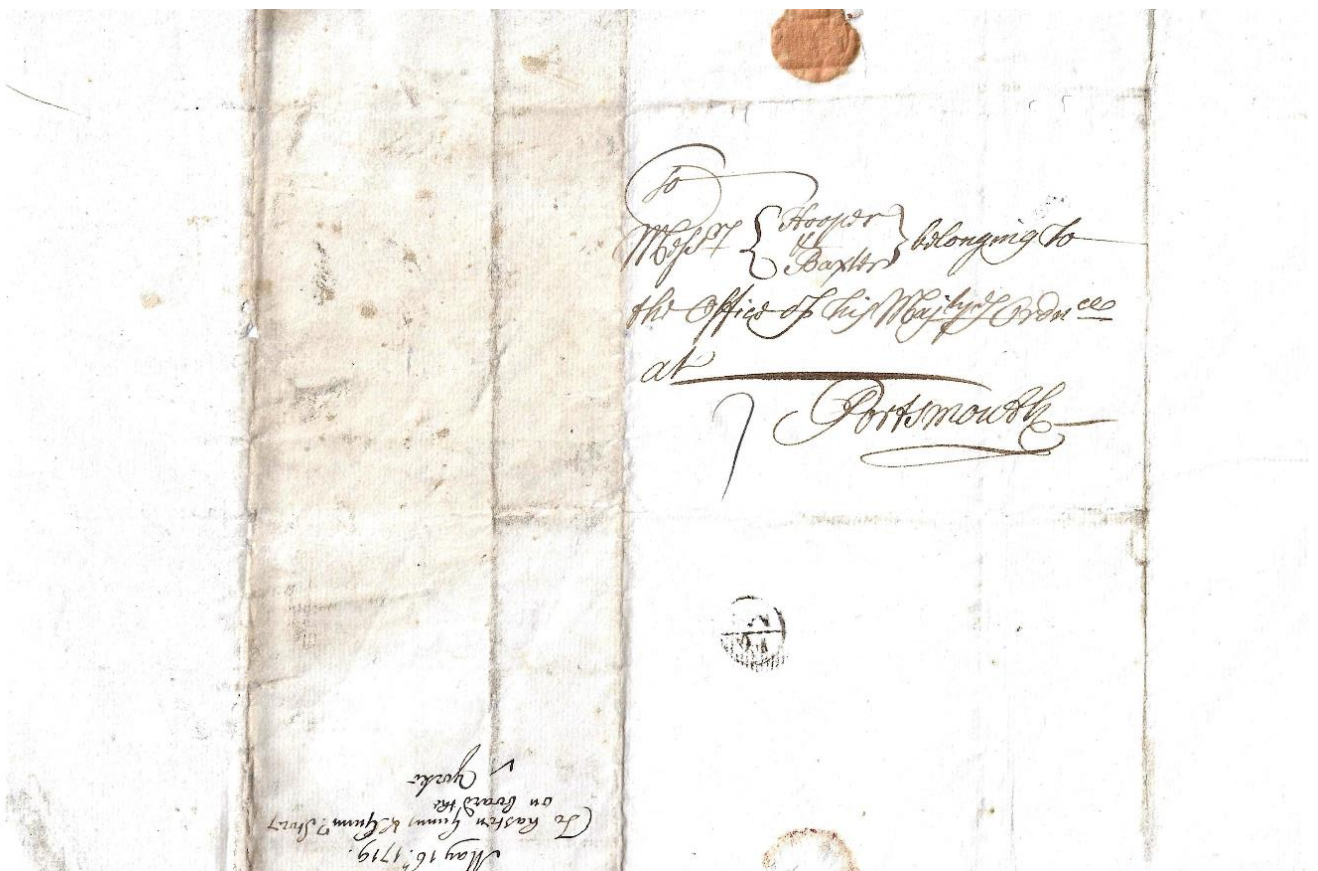 To
Messrs { Hooper & Baxter } belonging to
the Office of his Majtyes Ordnce
at
Portsmouth
7
May 16th. 1719.
To hasten Gunns & Gunnrs Stores
on board the
Yorke